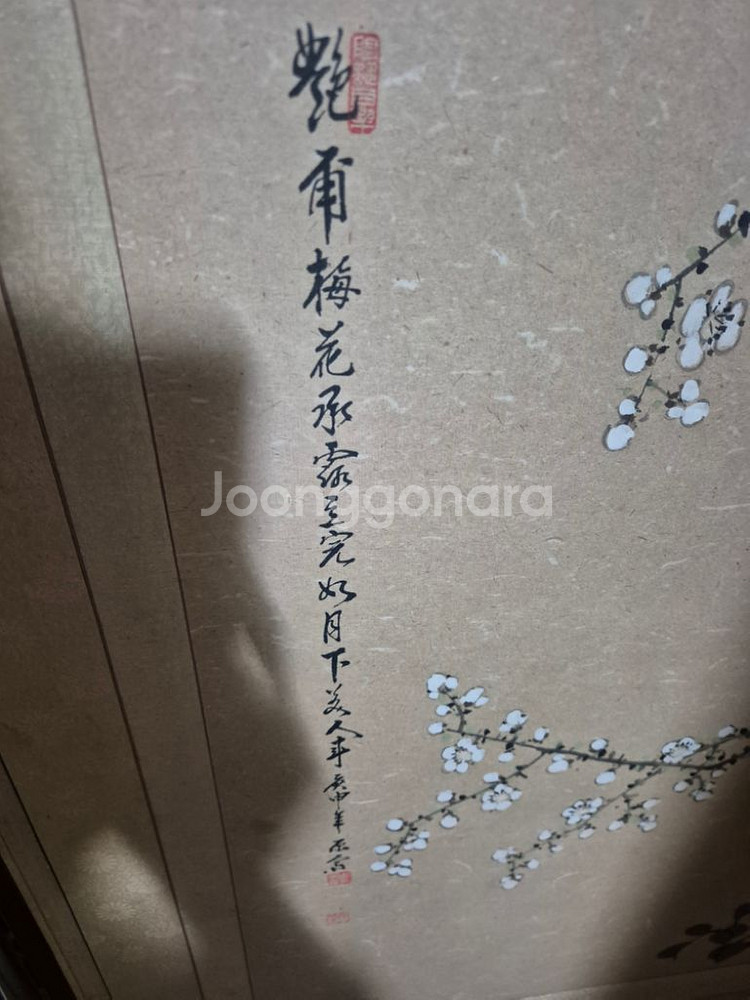 艶甫梅花承露立完如月下美人来庚申年
Joonggonara